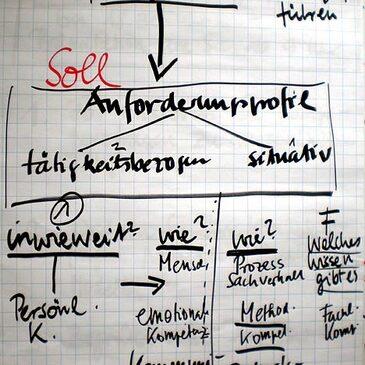 führen
Soll
Anforderungsprofil
tätigkeitsbezogen situativ
inwieweit? wie? wie? Welches
Mensch Prozess wissen
Sachverhalt gibt es
Persönl. emotional Method. Fachl.
K. Kompetenz Kompet. Komp.